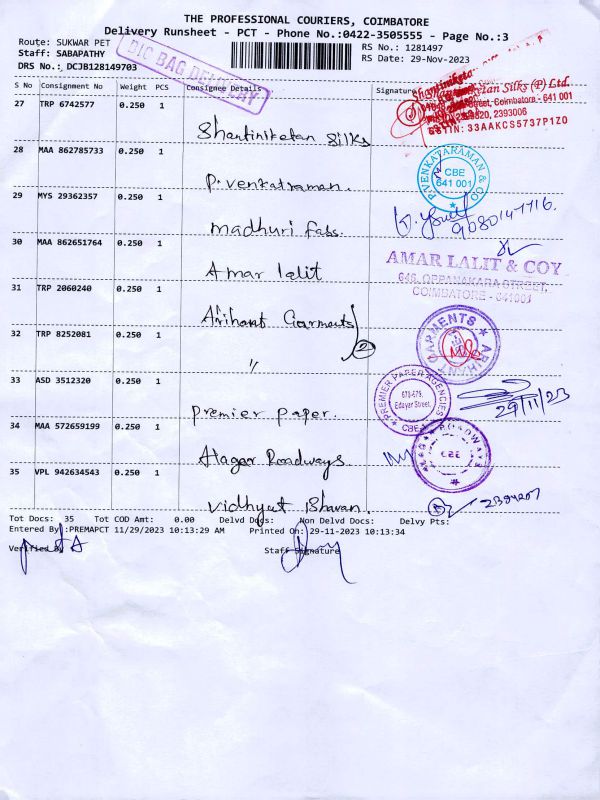 THE PROFESSIONAL COURIERS, COIMBATORE
Delivery Runsheet - PCT - Phone No.:0422-3505555 - Page No.:3
Route: SUKWAR PET
RS No.: 1281497
Staff: SABAPATHY
RS Date: 29-Nov-2023
DRS No.: DCJB128149703
DIC BAG DELIVERY
S No Consignment No Weight PCS Consignee Details Signature
27 TRP 6742577 0.250 1
Shantiniketan Silks
Shantiniketan Silks (P) Ltd.
Street, Coimbatore - 641 001
2393006
GSTIN: 33AAKCS5737P1Z0
28 MAA 862785733 0.250 1
P. Venkatraman.
P.VENKATARAMAN & CO
CBE
641 001
29 MYS 29362357 0.250 1
madhuri fabs.
9080147716.
30 MAA 862651764 0.250 1
Amar lalit
AMAR LALIT & COY
646, OPPANAKARA STREET,
COIMBATORE - 641001
31 TRP 2060240 0.250 1
Arihant Garments
ARIHANT GARMENTS
32 TRP 8252081 0.250 1
" 2
33 ASD 3512320 0.250 1
Premier Paper.
PREMIER PAPER AGENCIES
Edayar Street,
CBE
29/11/23
34 MAA 572659199 0.250 1
Alagar Roadways
ROADWAYS
CBE
35 VPL 942634543 0.250 1
Vidhyut Bhavan.
Tot Docs: 35 Tot COD Amt: 0.00 Delvd Docs: Non Delvd Docs: Delvy Pts:
Entered By :PREMAPCT 11/29/2023 10:13:29 AM Printed On: 29-11-2023 10:13:34
Verified By
Staff Signature